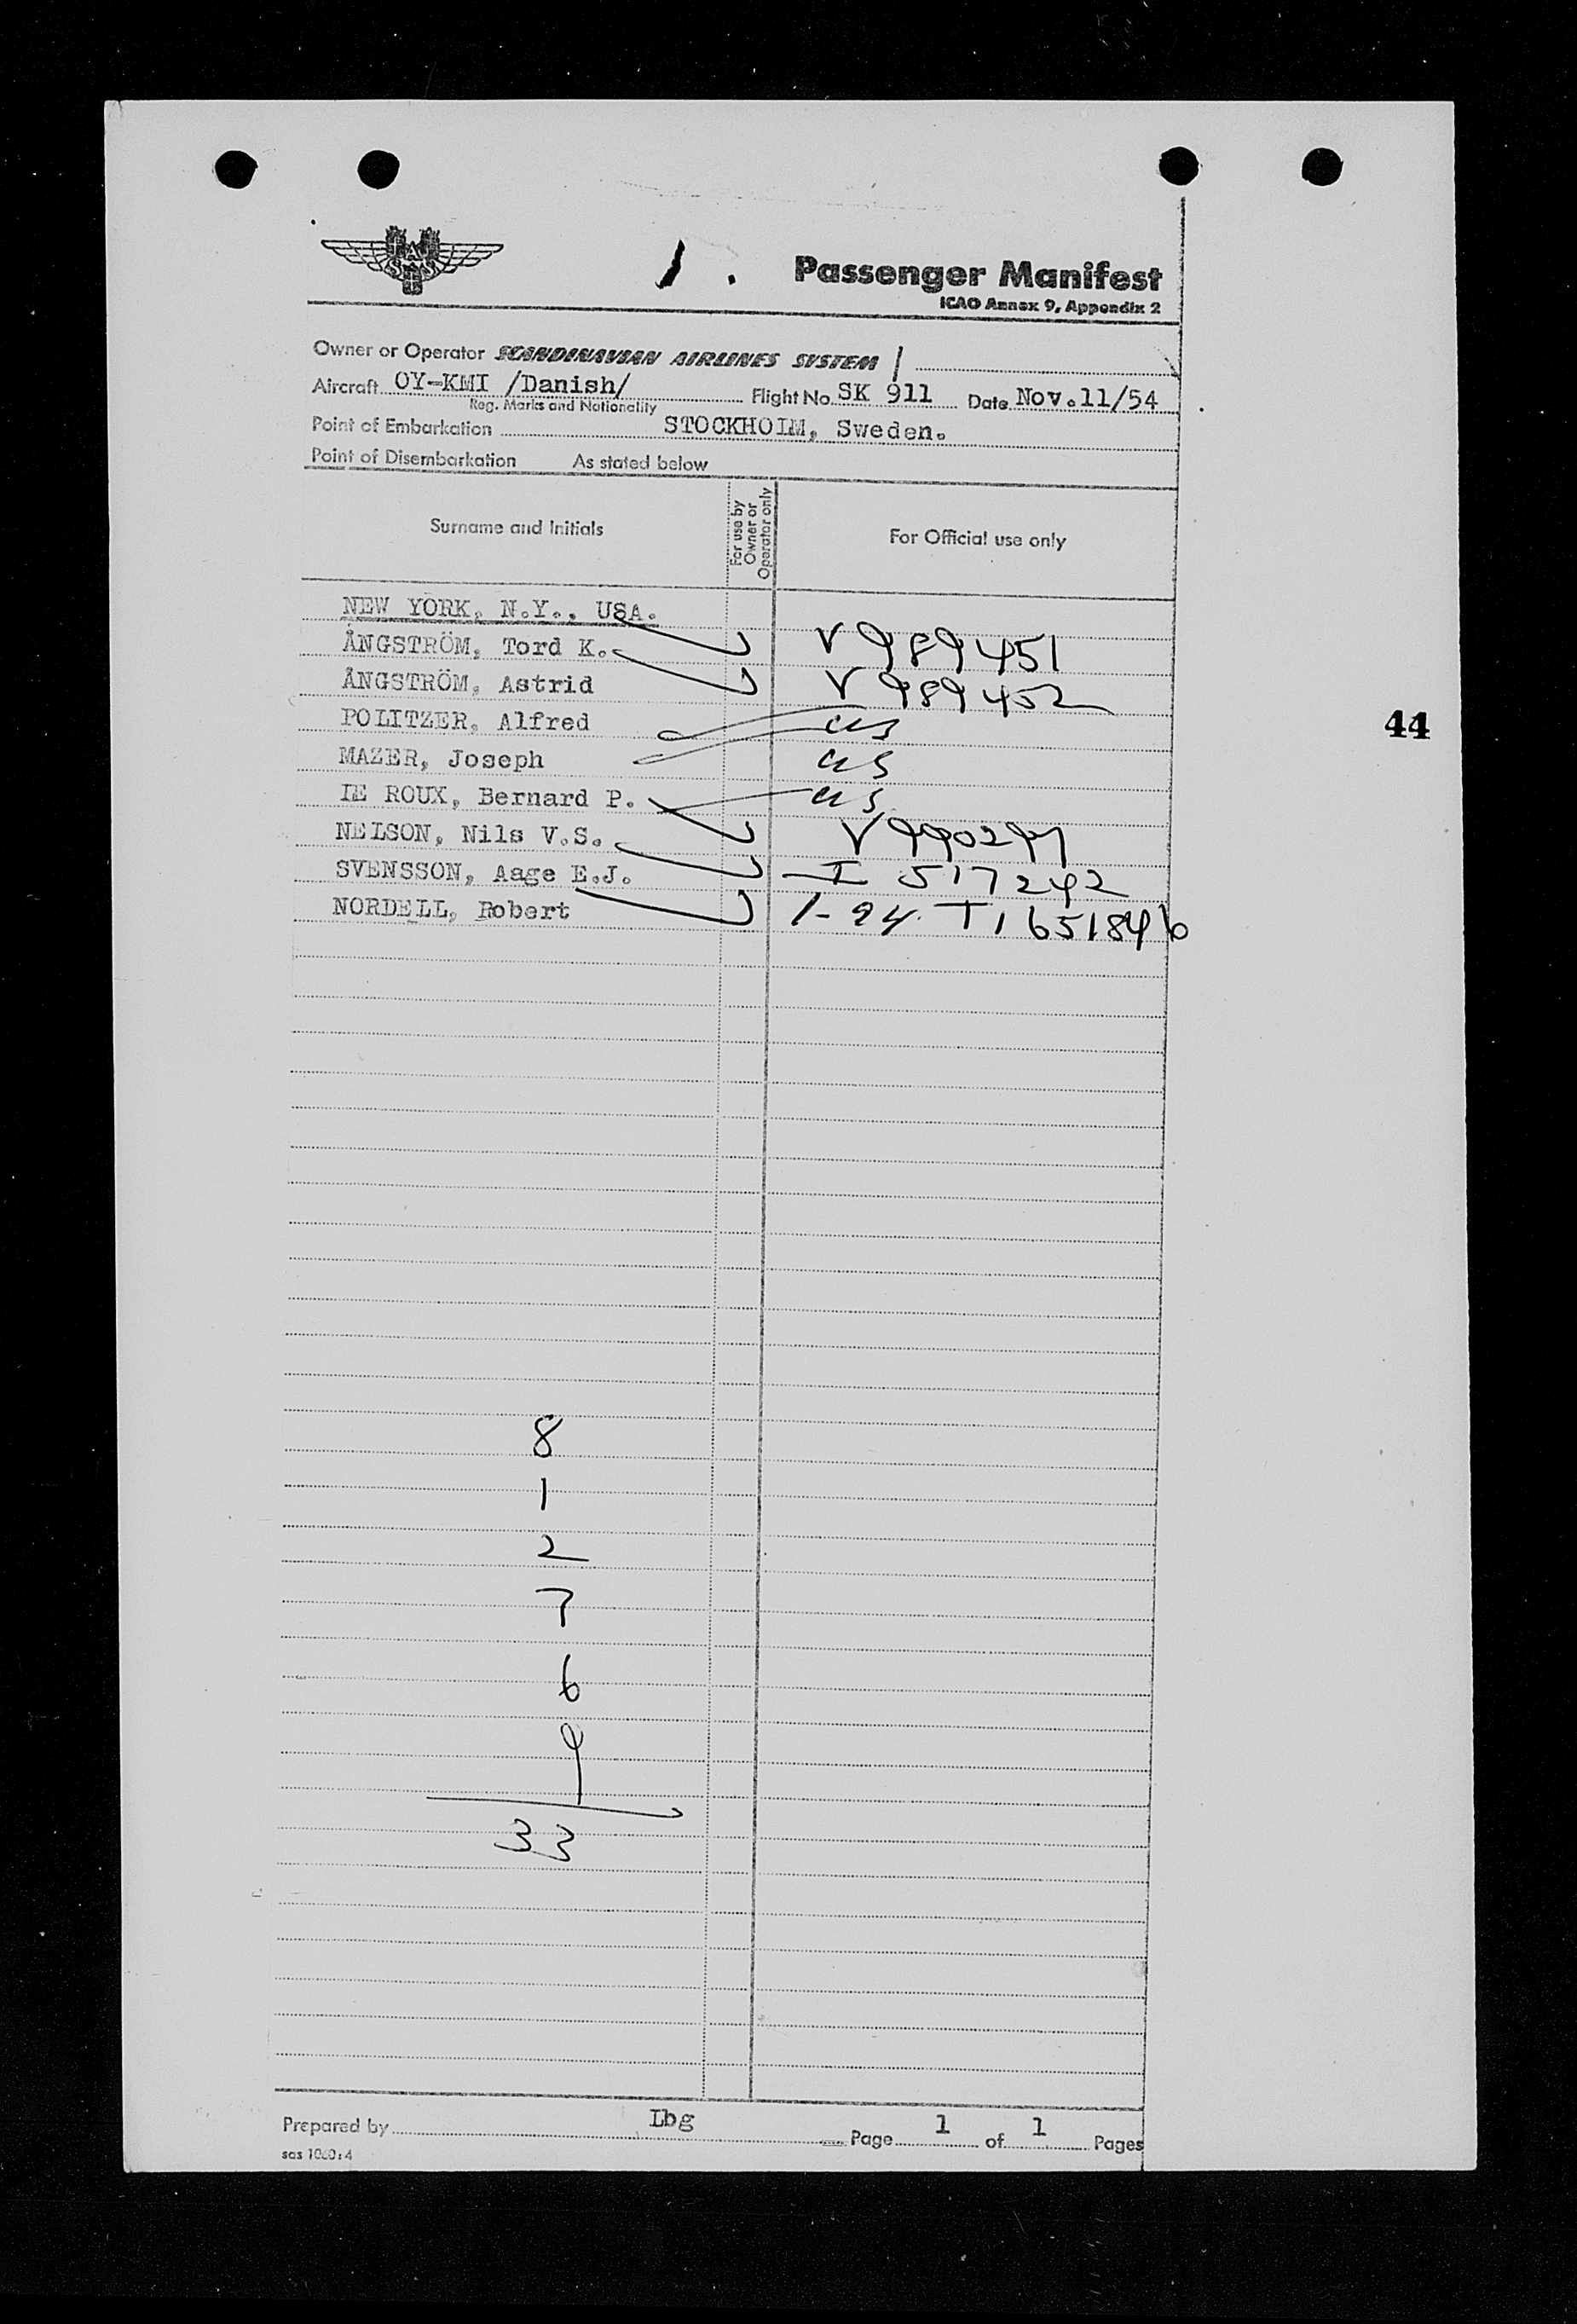 1.
Passenger Manifest
ICAO Annex 9, Appendix 2
Owner or Operator SCANDINAVIAN AIRLINES SYSTEM
Aircraft OY-KMI /Danish/ Flight No. SK 911 Date Nov.11/54
Reg. Marks and Nationality
Point of Embarkation STOCKHOLM, Sweden.
Point of Disembarkation As stated below
Surname and Initials For use by Owner or Operator only For Official use only
NEW YORK, N.Y., USA.
ÅNGSTRÖM, Tord K. V 989451
ÅNGSTRÖM, Astrid V 989452
POLITZER, Alfred US
44
MAZER, Joseph US
LE ROUX, Bernard P. US
NELSON, Nils V.S. V 990297
SVENSSON, Aage E.J. I 517242
NORDELL, Robert I-94 T1651846
8
1
2
7
6
9
33
Prepared by Lbg Page 1 of 1 Pages
sas 1060:4